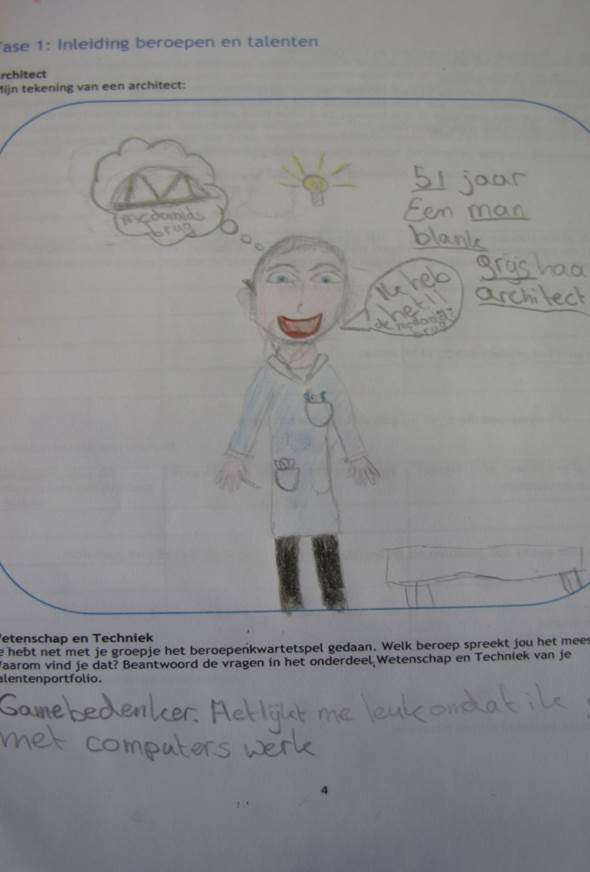 Fase 1: Inleiding beroepen en talenten
Architect
Mijn tekening van een architect:
mcdonalds
brug
51 jaar
Een man
blank
grijs haa
architect
Ik heb
het!!
de
brug
Wetenschap en Techniek
Je hebt net met je groepje het beroepenkwartetspel gedaan. Welk beroep spreekt jou het mees
Waarom vind je dat? Beantwoord de vragen in het onderdeel Wetenschap en Techniek van je
talentenportfolio.
Gamebedenker. Het lijkt me leuk omdat ik
met computers werk
4